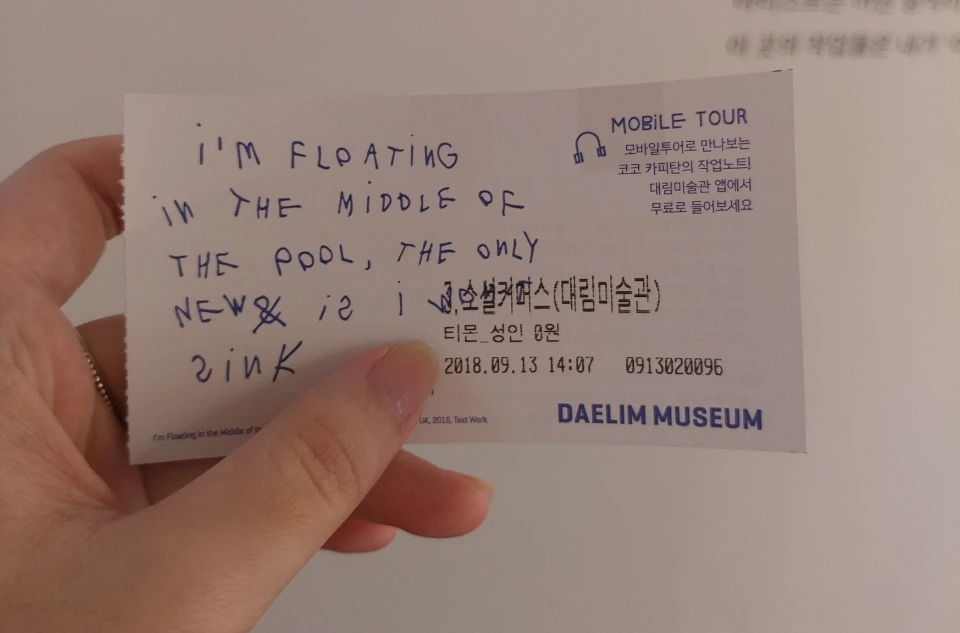 i'M FLOATiNG
iN THE MiDDLE OF
THE POOL, THE ONLY
NEWS iS i WON'T
SiNK
MOBiLE TOUR
모바일투어로 만나보는
코코 카피탄의 작업노트!
대림미술관 앱에서
무료로 들어보세요
3.소셜커머스(대림미술관)
티몬_성인 0원
2018.09.13 14:07 0913020096
I'm Floating in the Middle of
UK, 2016, Text Work
DAELIM MUSEUM